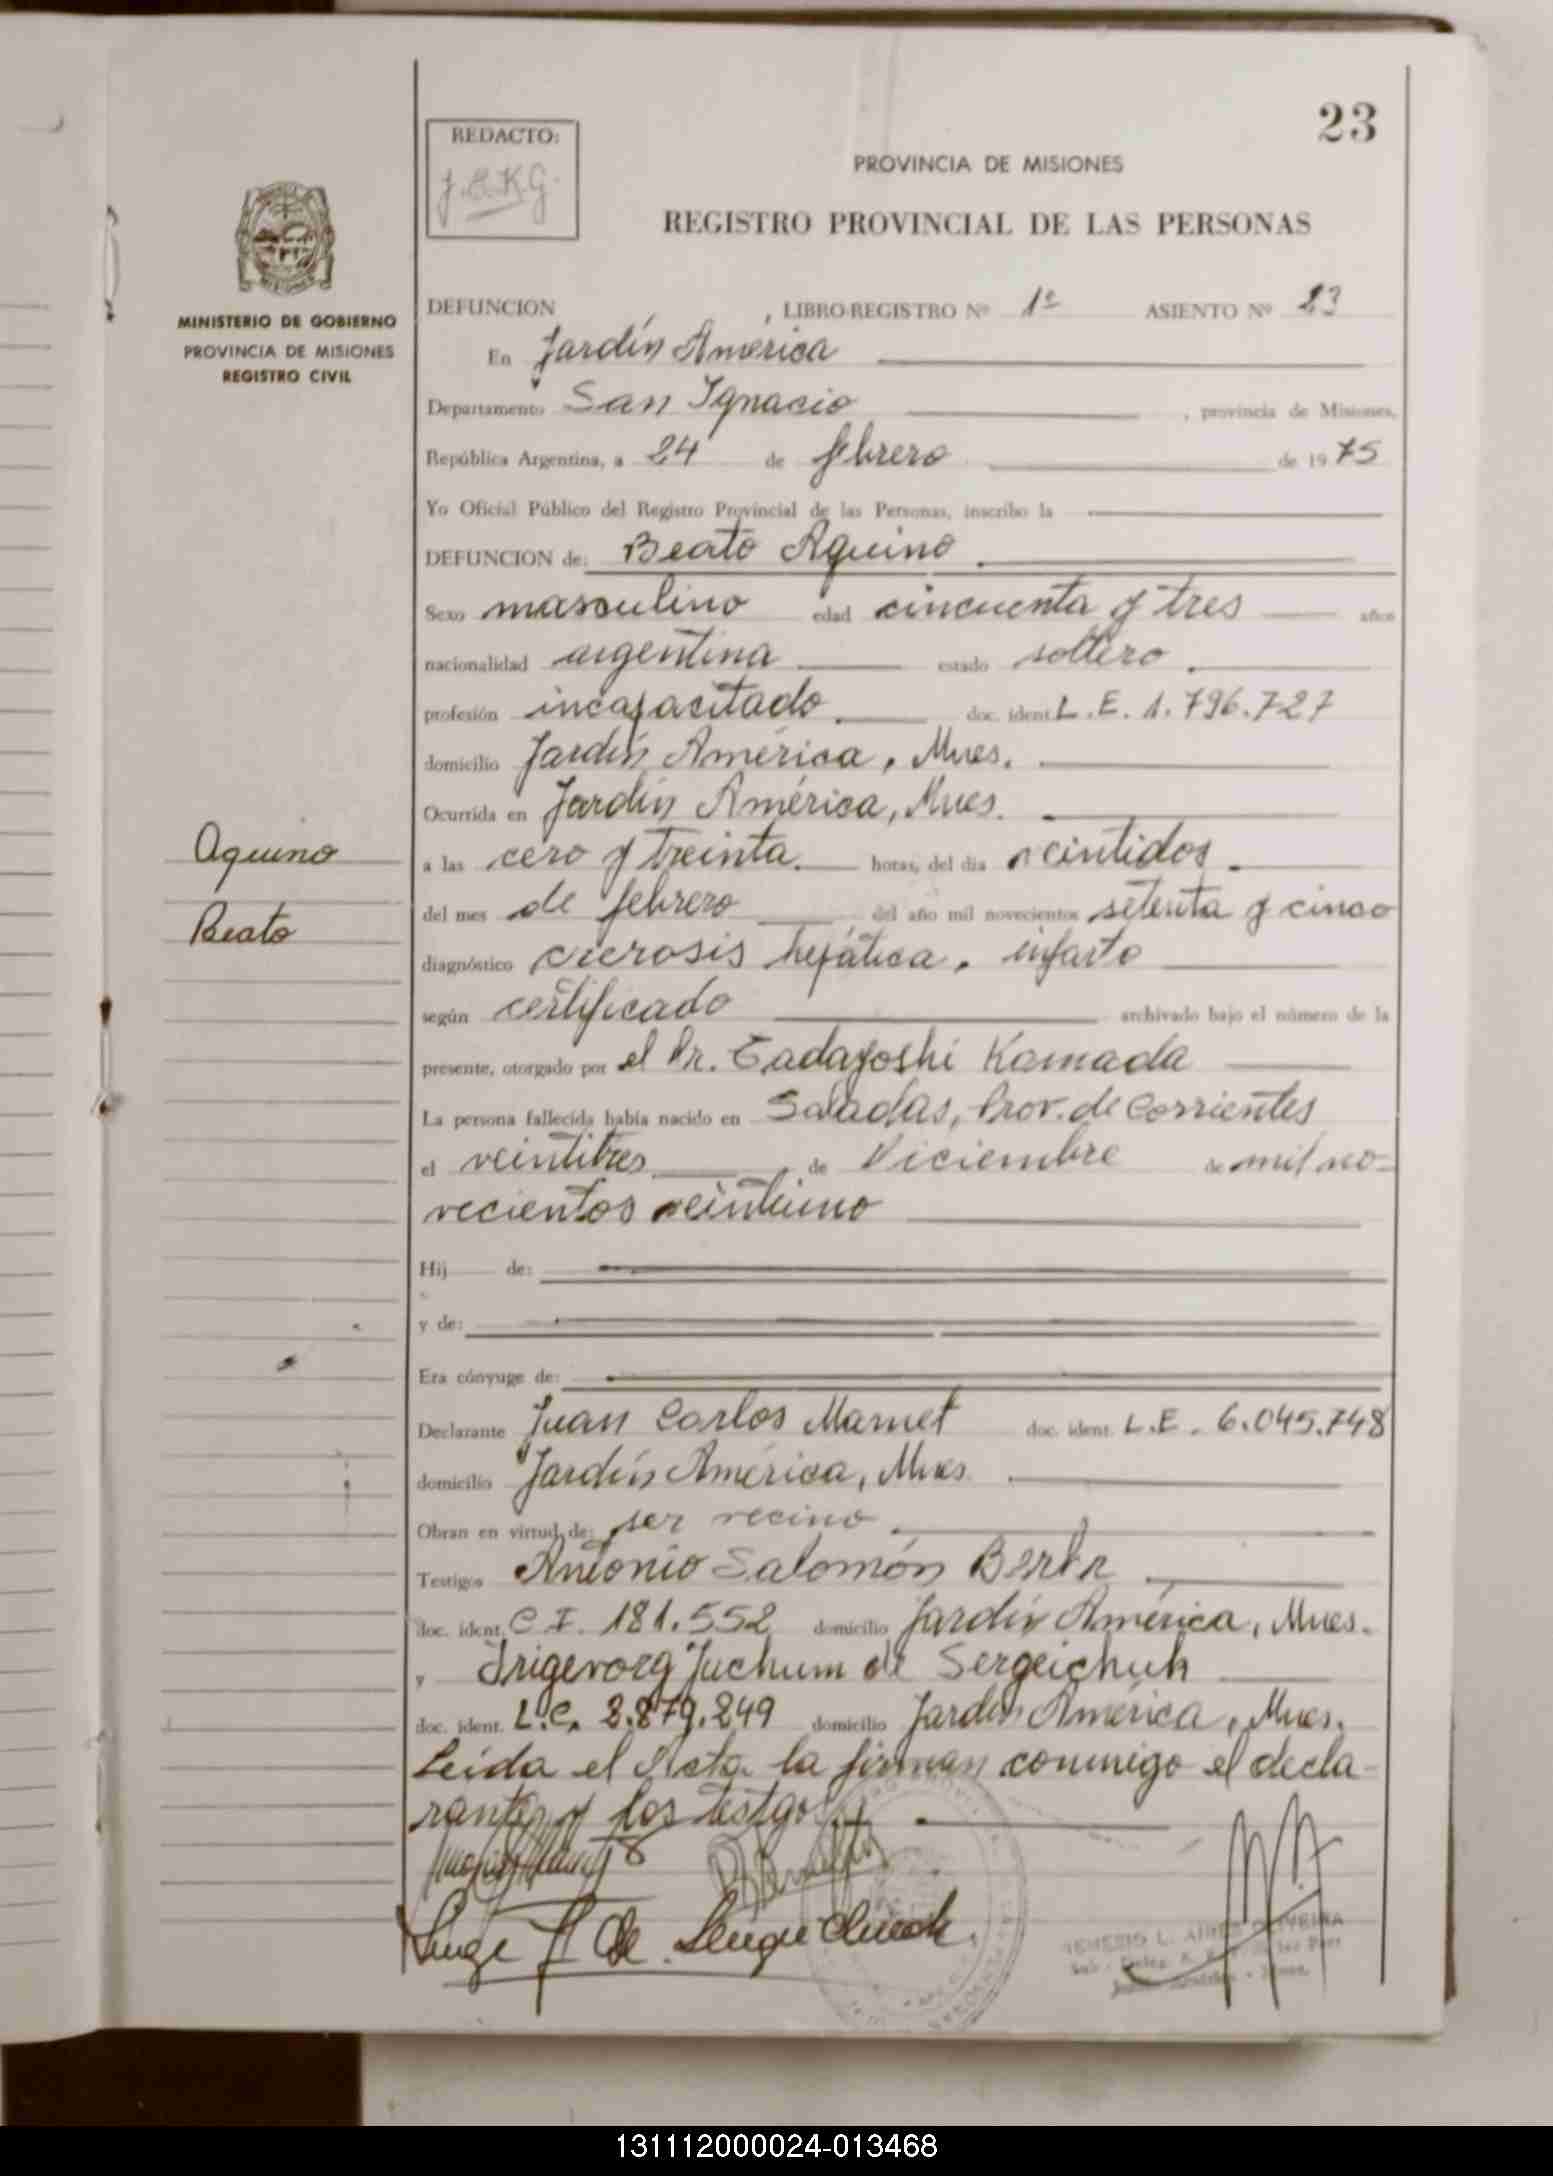 23
REDACTO:
J.C.K.G.
PROVINCIA DE MISIONES
REGISTRO PROVINCIAL DE LAS PERSONAS
MINISTERIO DE GOBIERNO
PROVINCIA DE MISIONES
REGISTRO CIVIL
DEFUNCION , LIBRO-REGISTRO Nº 1º ASIENTO Nº 23
En Jardín América
Departamento San Ignacio , provincia de Misiones,
República Argentina, a 24 de febrero de 1975
Yo Oficial Público del Registro Provincial de las Personas, inscribo la
DEFUNCION de: Beato Aquino
Sexo masculino edad cincuenta y tres años
nacionalidad argentina estado soltero.
profesión incapacitado doc. ident. L.E. 1.796.727
domicilio Jardín América, Mnes.
Ocurrida en Jardín América, Mnes.
Aquino
Beato
a las cero y treinta. horas, del día veintidos.
del mes de febrero del año mil novecientos setenta y cinco
diagnóstico cierosis hepática. infarto
según certificado archivado bajo el número de la
presente, otorgado por el Dr. Tadayoshi Kamada
La persona fallecida había nacido en Saladas, Prov. de Corrientes
el veintitres de Diciembre de mil no-
vecientos veintiuno
Hij de:
y de:
Era cónyuge de:
Declarante Juan Carlos Mamet doc. ident. L.E. 6.045.748
domicilio Jardín América, Mnes.
Obran en virtud de: ser vecino
Testigos Antonio Salomón
doc. ident. C.I. 181.552 domicilio Jardín América, Mnes.
y Juchum de Sergeichuk
doc. ident. L.C. 2.879.249 domicilio Jardín América, Mnes.
Leída el Acta la firman conmigo el decla-
rante y los testgos
131112000024-013468